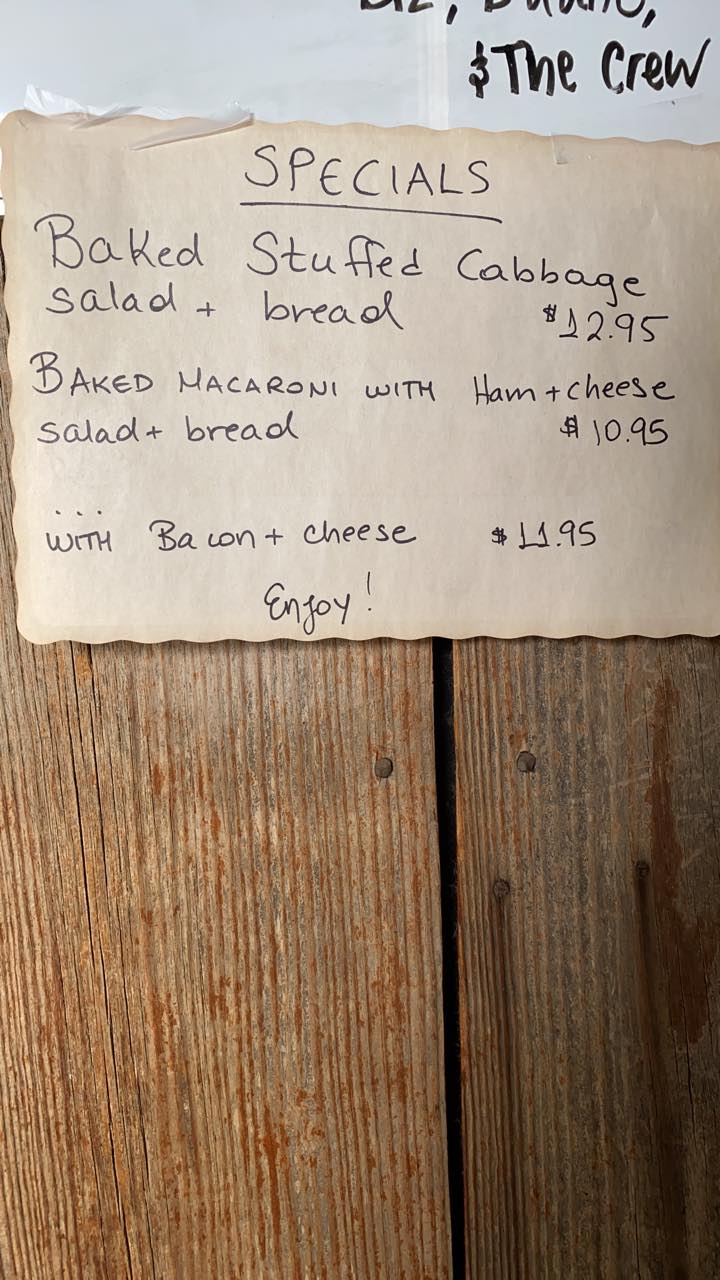 $ The Crew
SPECIALS
Baked Stuffed Cabbage
salad + bread $12.95
BAKED MACARONI WITH Ham + cheese
salad + bread $10.95
...
WITH Bacon + cheese $11.95
Enjoy!